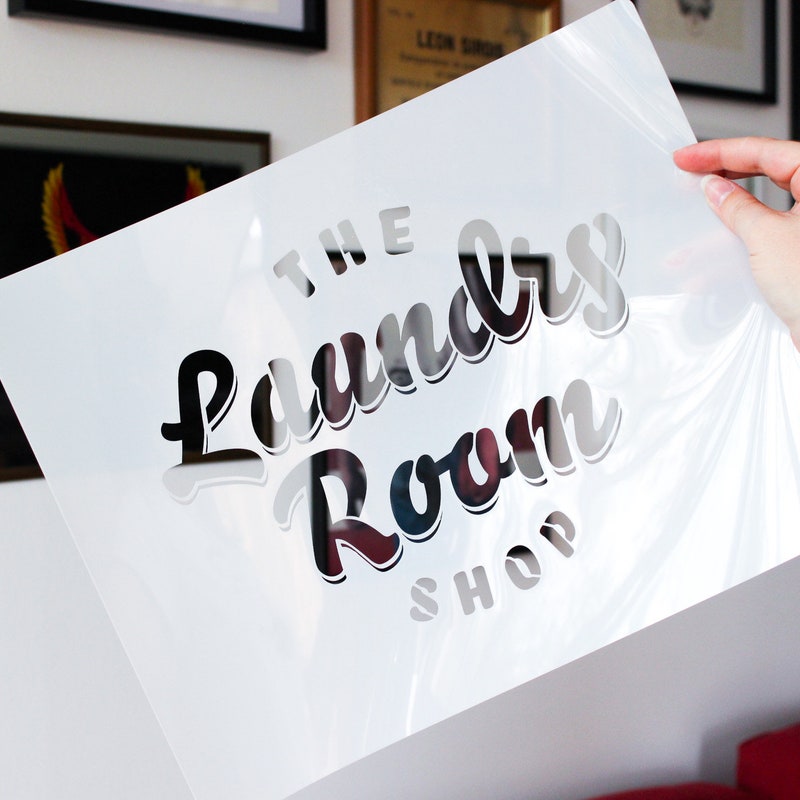 LEON SIROIS
THE
Laundry
Room
SHOP